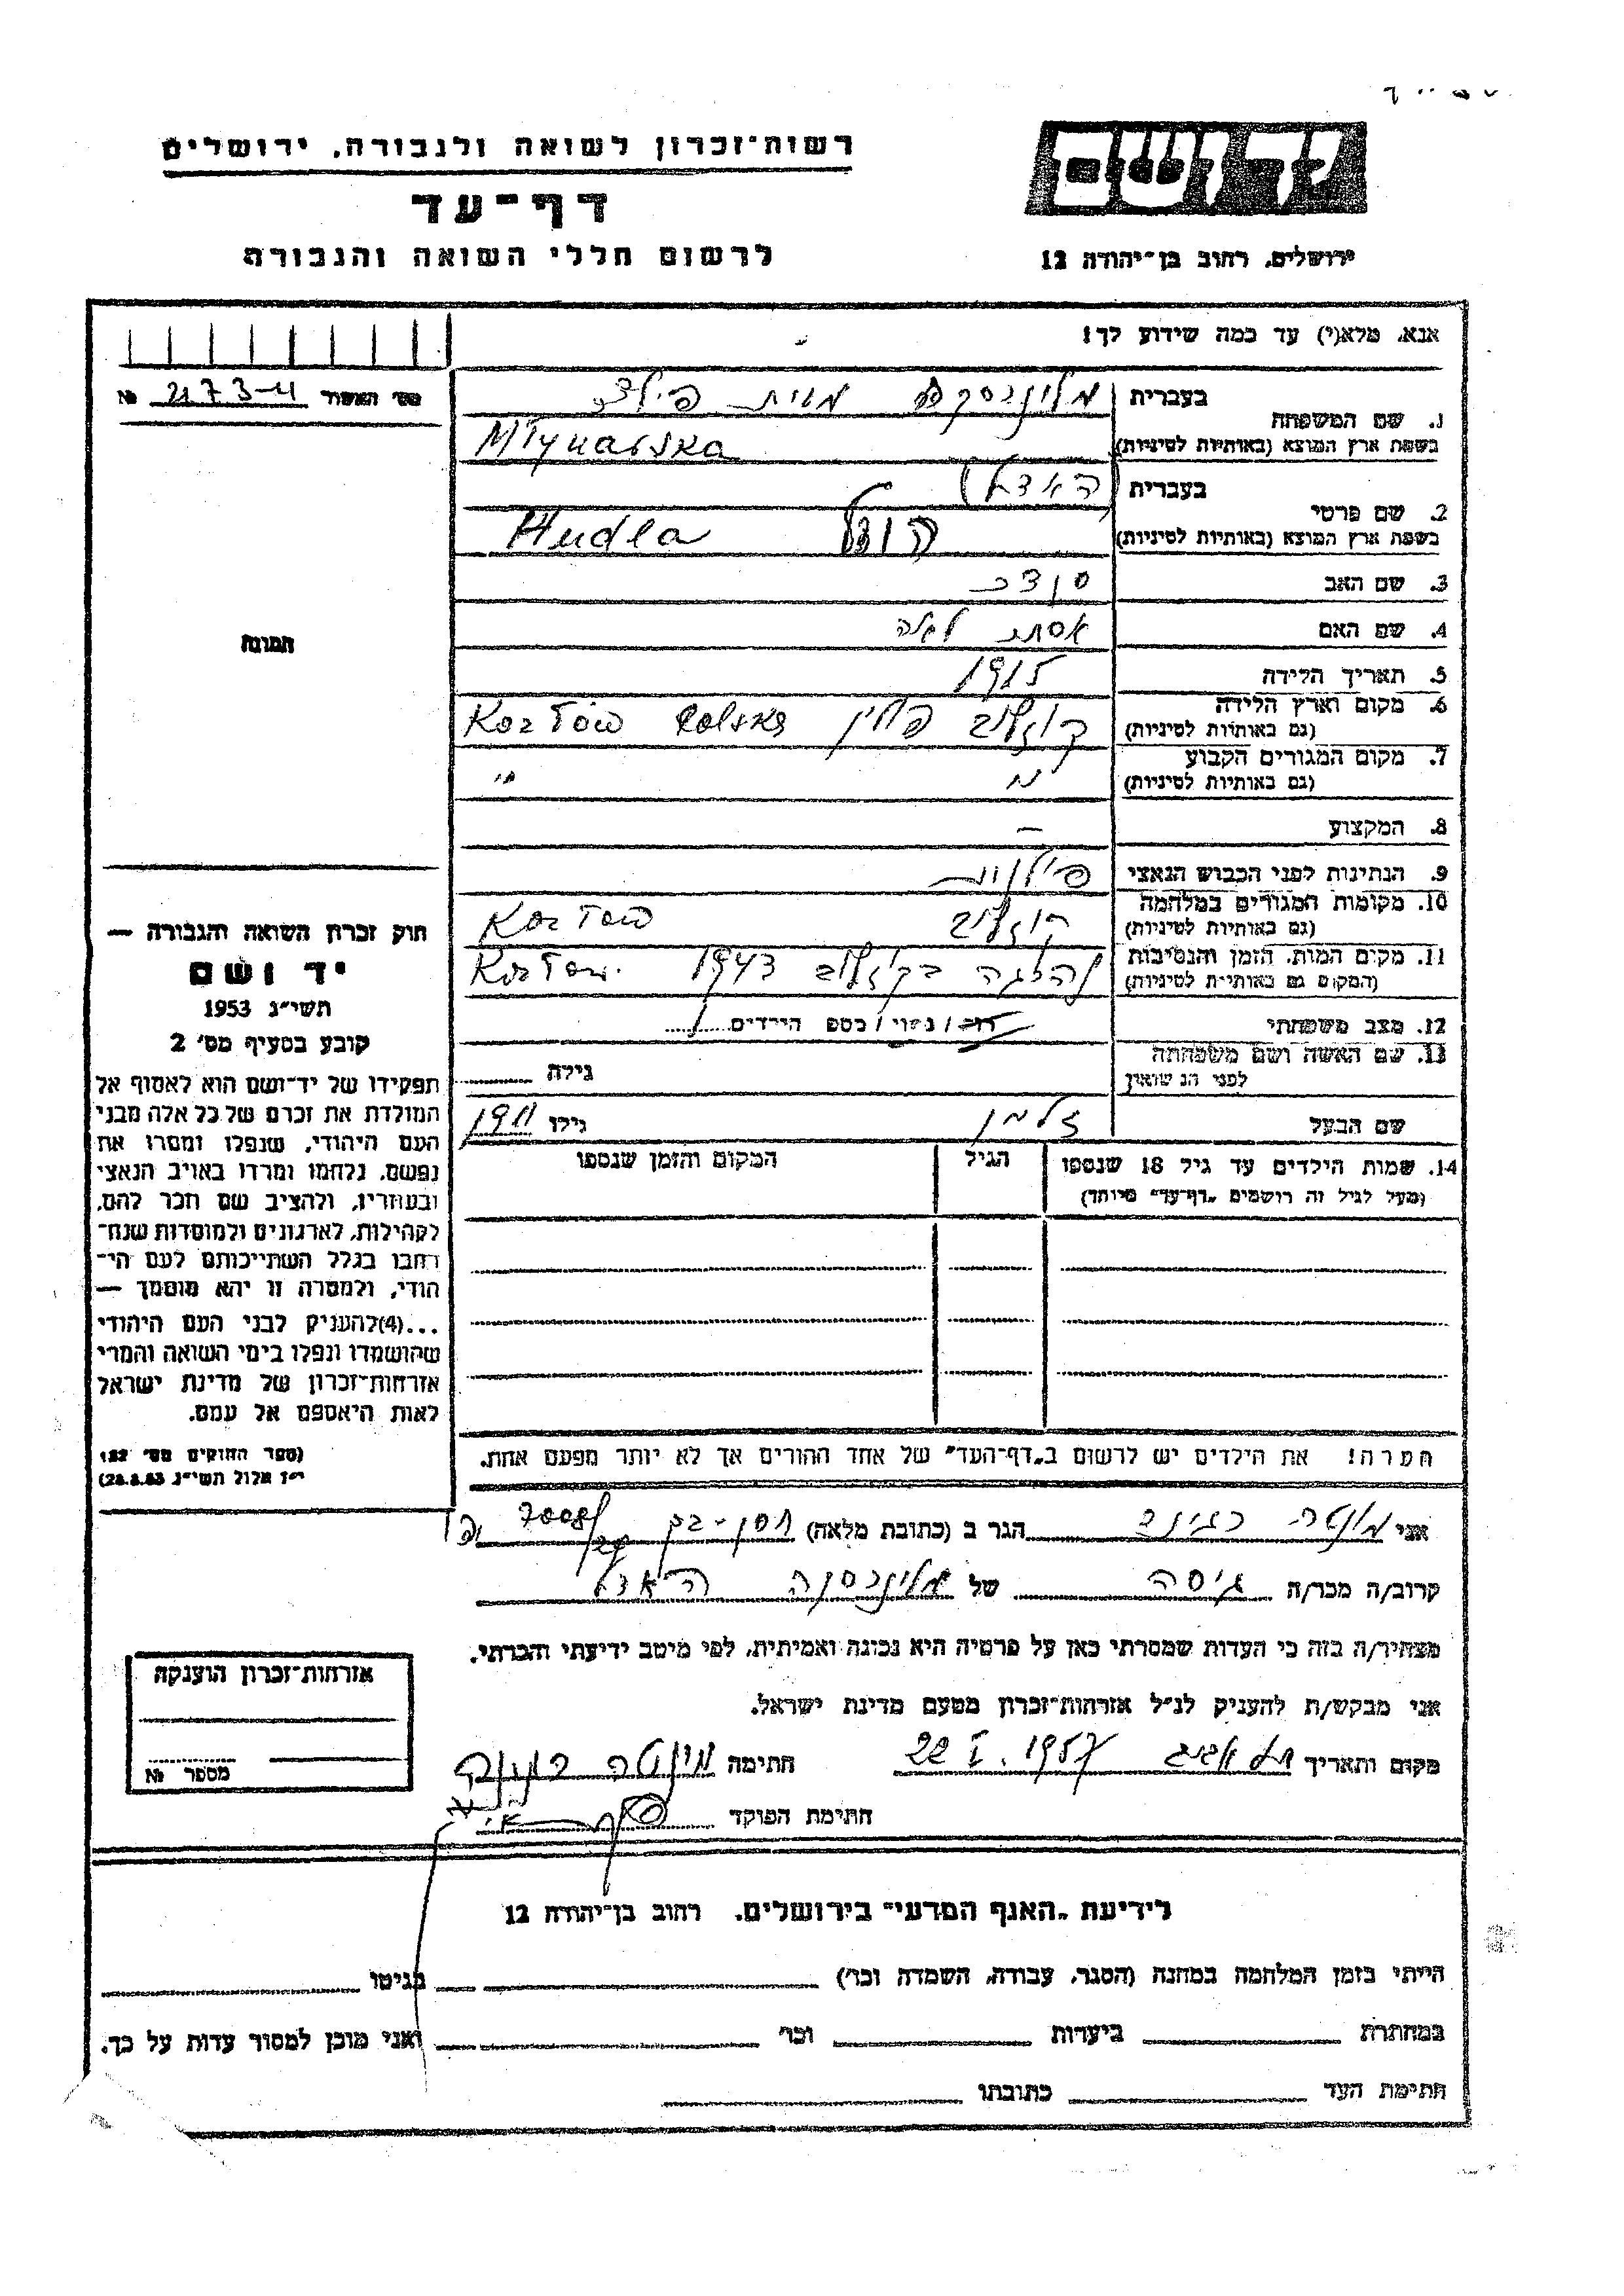 רשות־זכרון לשואה ולגבורה, ירושלים
דף־עד
לרשום חללי השואה והגבורה
יד ושם
ירושלים, רחוב בן־יהודה 12
אנא, מלא(י) עד כמה שידוע לך!
מס׳ האשור № 2173-4
תמונה
1. שם המשפחה
בעברית
בשפת ארץ המוצא (באותיות לטיניות) Młynarska
2. שם פרטי
בעברית (האדל)
בשפת ארץ המוצא (באותיות לטיניות) הודל Hudla
3. שם האב סנדר
4. שם האם אסתר לאה
5. תאריך הלידה 1915
6. מקום וארץ הלידה
(גם באותיות לטיניות) קוזלוב פולין Polska Kozłów
7. מקום המגורים הקבוע
(גם באותיות לטיניות) " "
8. המקצוע —
9. הנתינות לפני הכבוש הנאצי פולנית
10. מקומות המגורים במלחמה
(גם באותיות לטיניות) קוזלוב Kozłów
11. מקום המות, הזמן והנסיבות
(המקום גם באותיות לטיניות) נהרגה בקוזלוב 1943 Kozłow.
12. מצב משפחתי רוק / נשוי / מספר הילדים
13. שם האשה ושם משפחתה
לפני הנשואין גילה
שם הבעל זלמן גילו 1911
14. שמות הילדים עד גיל 18 שנספו
(מעל לגיל זה רושמים „דף־עד״ מיוחד)
הגיל
המקום והזמן שנספו
הערה! את הילדים יש לרשום ב„דף־העד״ של אחד ההורים אך לא יותר מפעם אחת.
חוק זכרון השואה והגבורה —
יד ושם
תשי״ג 1953
קובע בסעיף מס׳ 2
תפקידו של יד־ושם הוא לאסוף אל
המולדת את זכרם של כל אלה מבני
העם היהודי, שנפלו ומסרו את
נפשם, נלחמו ומרדו באויב הנאצי
ובעוזריו, ולהציב שם וזכר להם,
לקהילות, לארגונים ולמוסדות שנח־
רחבו בגלל השתייכותם לעם הי־
הודי, ולמטרה זו יהא מוסמך —
...(4)להעניק לבני העם היהודי
שהושמדו ונפלו בימי השואה והמרי
אזרחות־זכרון של מדינת ישראל
לאות היאספם אל עמם.
(ספר החוקים מס׳ 132
י״ז אלול תשי״ג 28.8.53)
אני הגר ב (כתובת מלאה)
קרוב/ה מכר/ה גיסה של האדל
מצהיר/ה בזה כי העדות שמסרתי כאן על פרטיה היא נכונה ואמיתית, לפי מיטב ידיעתי והכרתי.
אני מבקש/ת להעניק לנ״ל אזרחות־זכרון מטעם מדינת ישראל.
מקום ותאריך תל אביב 22 I. 1957 חתימה
חתימת הפוקד
אזרחות־זכרון הוענקה
מספר №
לידיעת „האגף המדעי״ בירושלים, רחוב בן־יהודה 12
הייתי בזמן המלחמה במחנה (הסגר, עבודה, השמדה וכו׳) בגיטו
במחתרת ביערות וכו׳ ואני מוכן למסור עדות על כך.
חתימת העד כתובתו